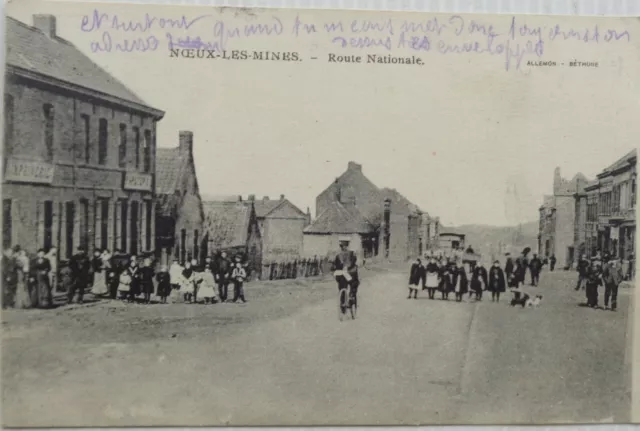 et surtout quand tu m'écris met donc toujours ton
adresse dessus les enveloppes
NŒUX-LES-MINES. – Route Nationale.
ALLEMON - BÉTHUNE